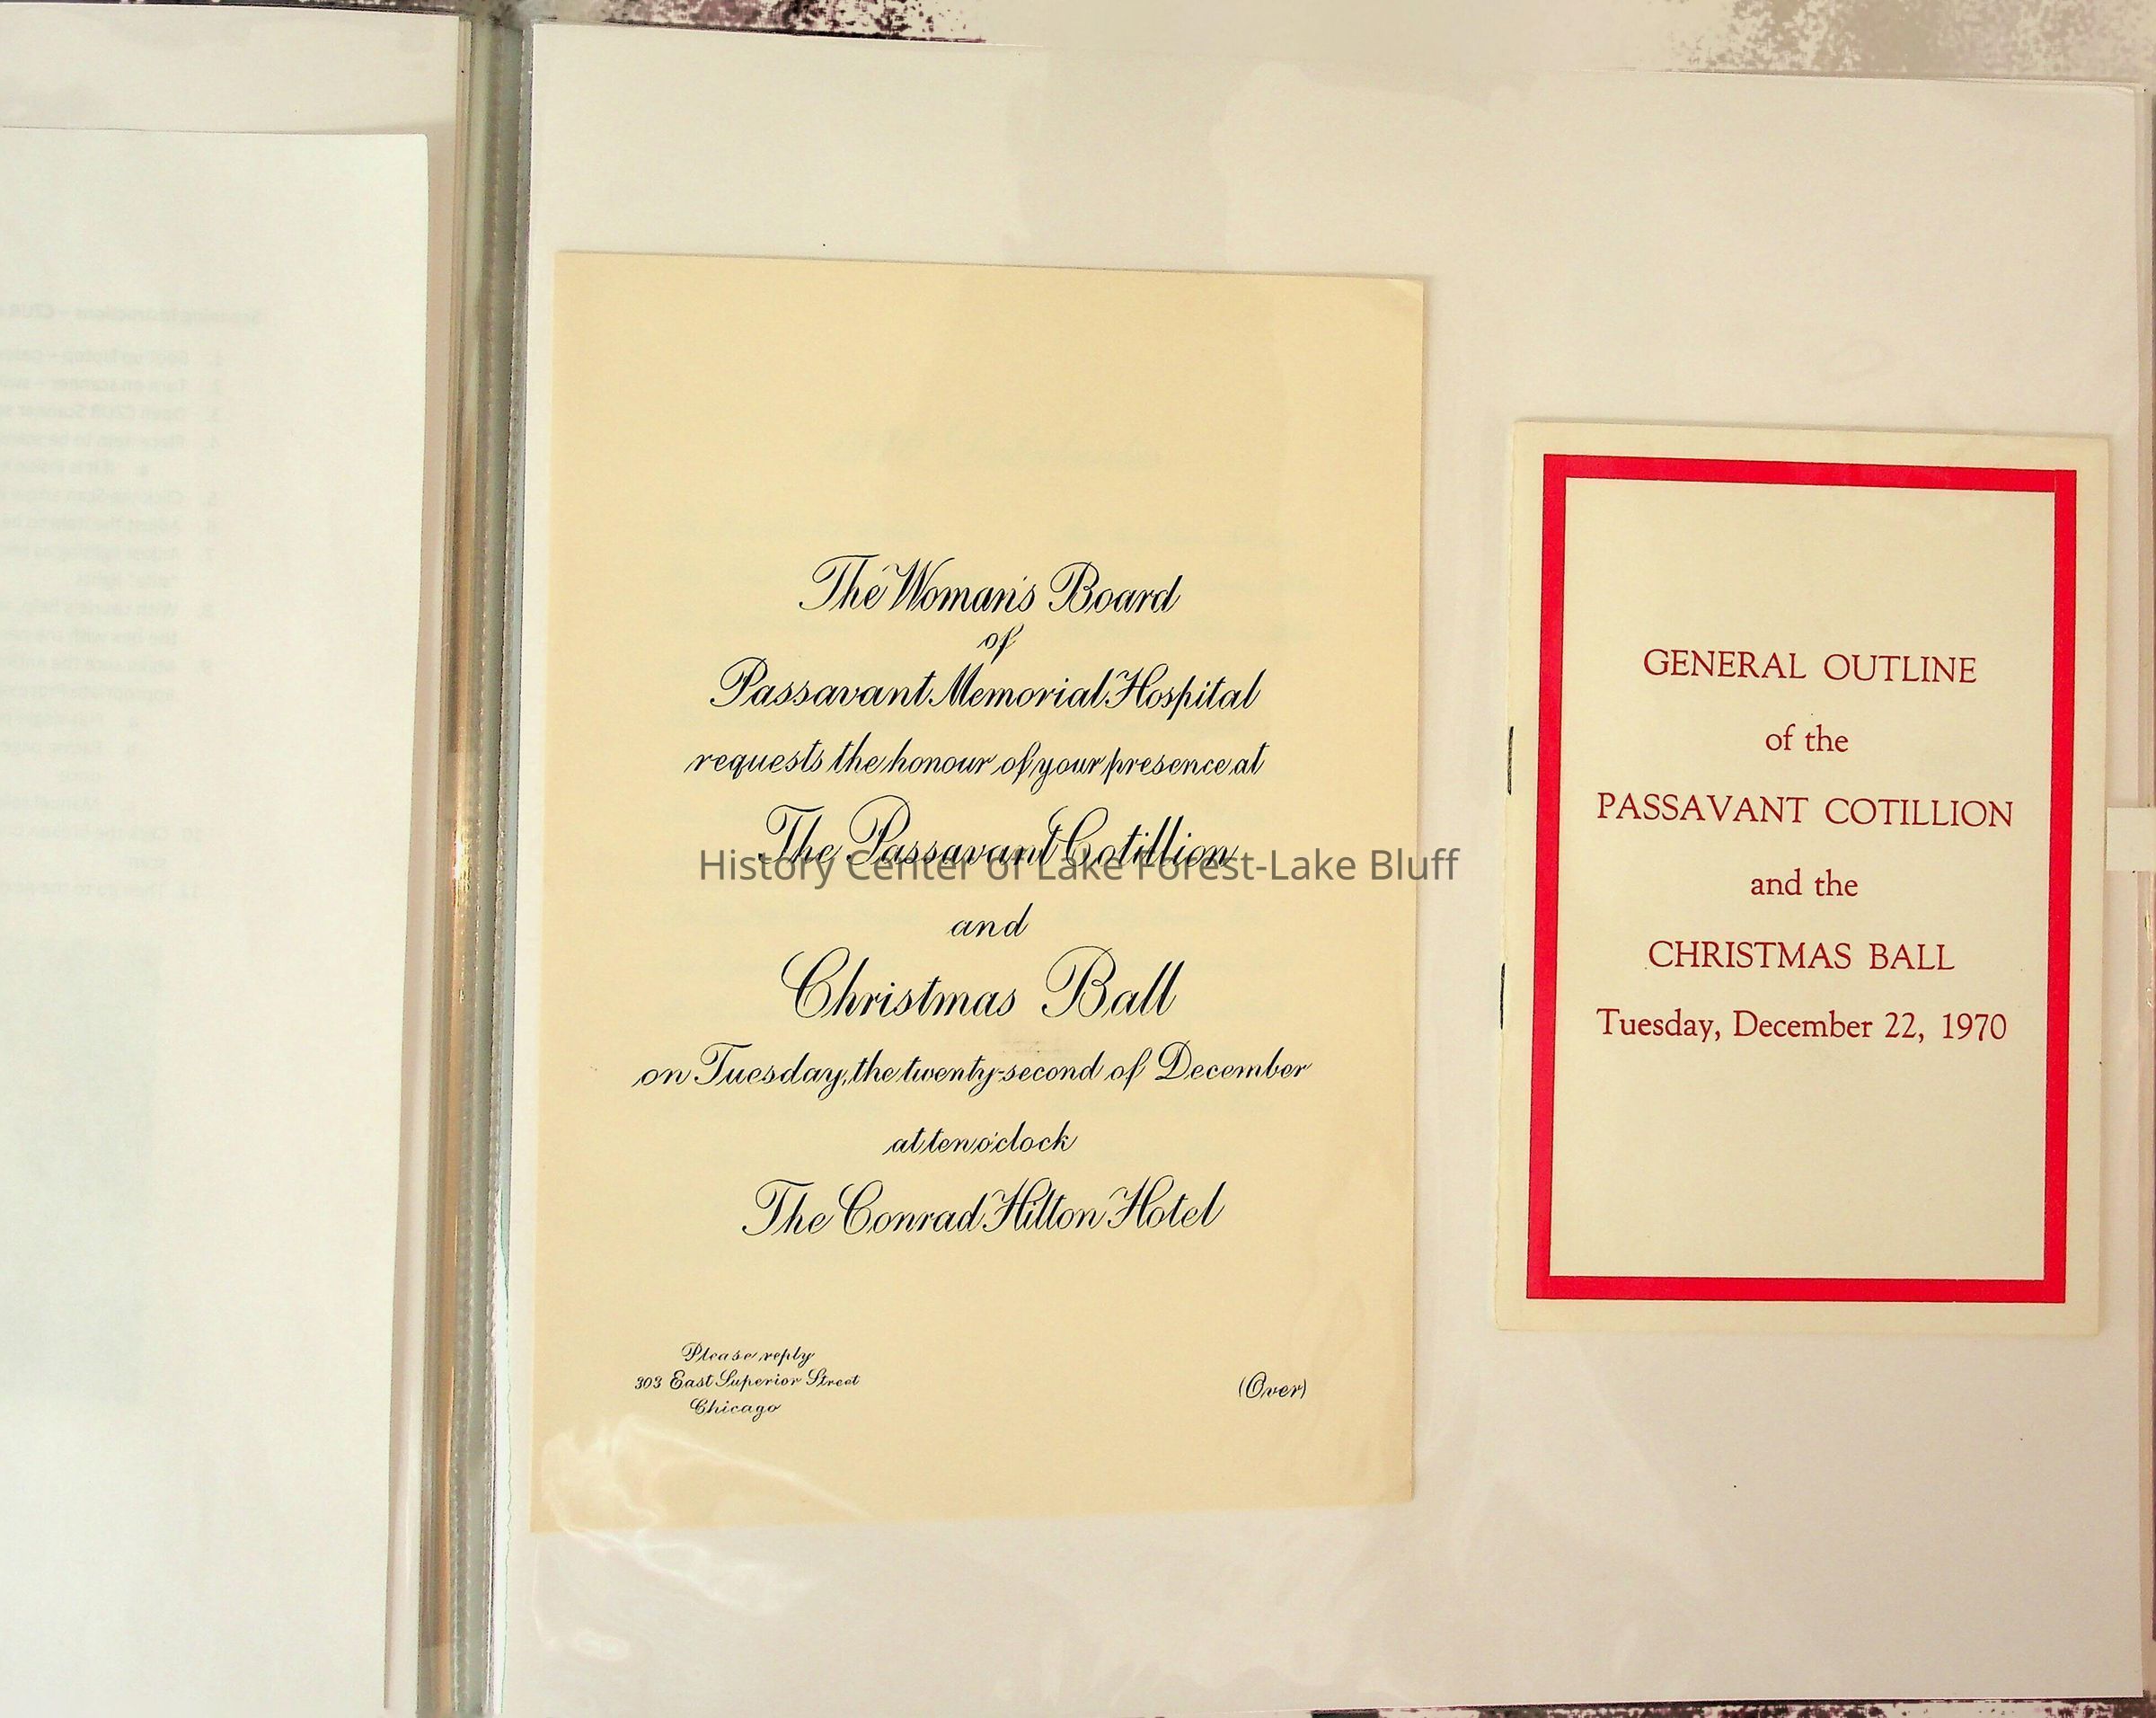 The Woman's Board
of
Passavant Memorial Hospital
requests the honour of your presence at
The Passavant Cotillion
History Center of Lake Forest-Lake Bluff
and
Christmas Ball
on Tuesday, the twenty-second of December
at ten o'clock
The Conrad Hilton Hotel
Please reply
303 East Superior Street
Chicago
(Over)
GENERAL OUTLINE
of the
PASSAVANT COTILLION
and the
CHRISTMAS BALL
Tuesday, December 22, 1970